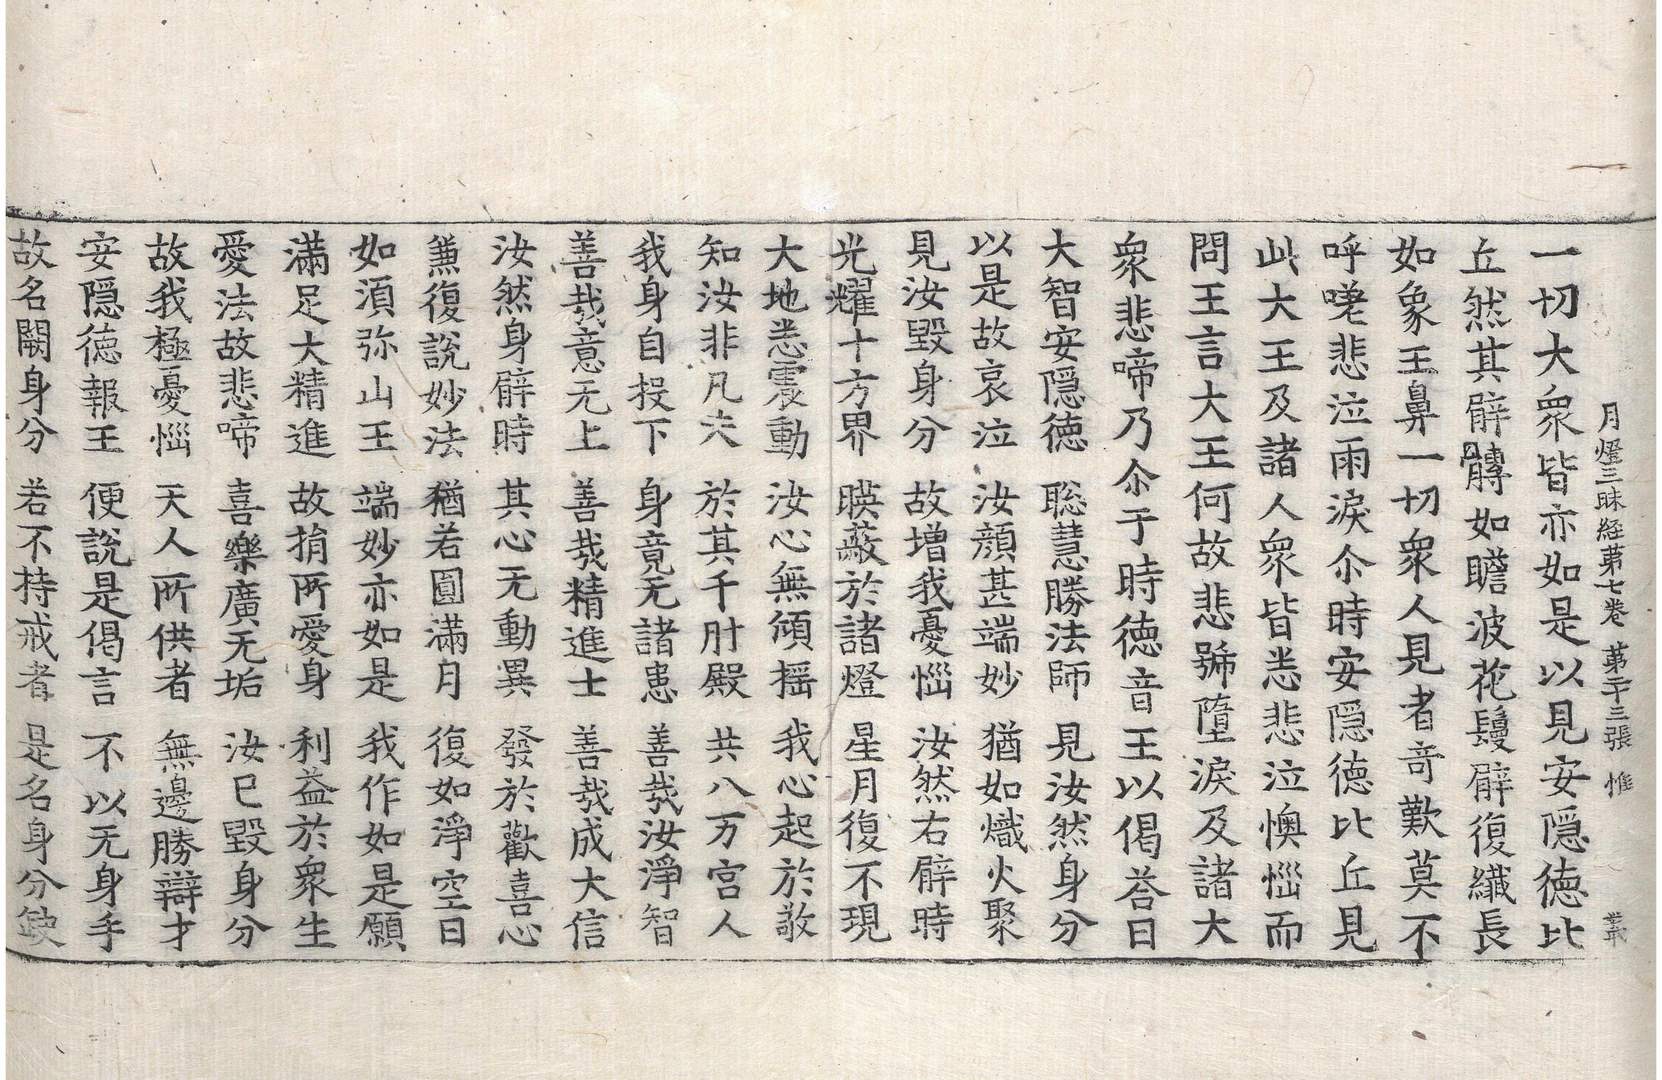 月燈三昧経苐七卷 苐二十三張 惟
一切大衆皆亦如是以見安隱徳比
丘然其臂髆如瞻波花鬘臂復纖長
如象王鼻一切衆人見者竒歎莫不
呼嗟悲泣雨淚尒時安隱徳比丘見
此大王及諸人衆皆悉悲泣懊惱而
問王言大王何故悲號墮淚及諸大
衆悲啼乃尒于時徳音王以偈荅曰
大智安隱徳 聡慧勝法師 見汝然身分
以是故哀泣 汝顔甚端妙 猶如熾火聚
見汝毀身分 故增我憂惱 汝然右臂時
光耀十方界 暎蔽於諸燈 星月復不現
大地悉震動 汝心無傾摇 我心起於敬
知汝非凡夫 於其千肘殿 共八万宫人
我身自投下 身竟无諸患 善㦲汝淨智
善㦲意无上 善㦲精進士 善㦲成大信
汝然身臂時 其心无動異 發於歡喜心
兼復說妙法 猶若圓滿月 復如淨空日
如湏弥山王 端妙亦如是 我作如是願
滿足大精進 故捐所愛身 利益於衆生
愛法故悲啼 喜樂廣无垢 汝已毀身分
故我極憂惱 天人所供者 無邊勝辯才
安隱徳報王 便說是偈言 不以无身手
故名闕身分 若不持戒者 是名身分缺